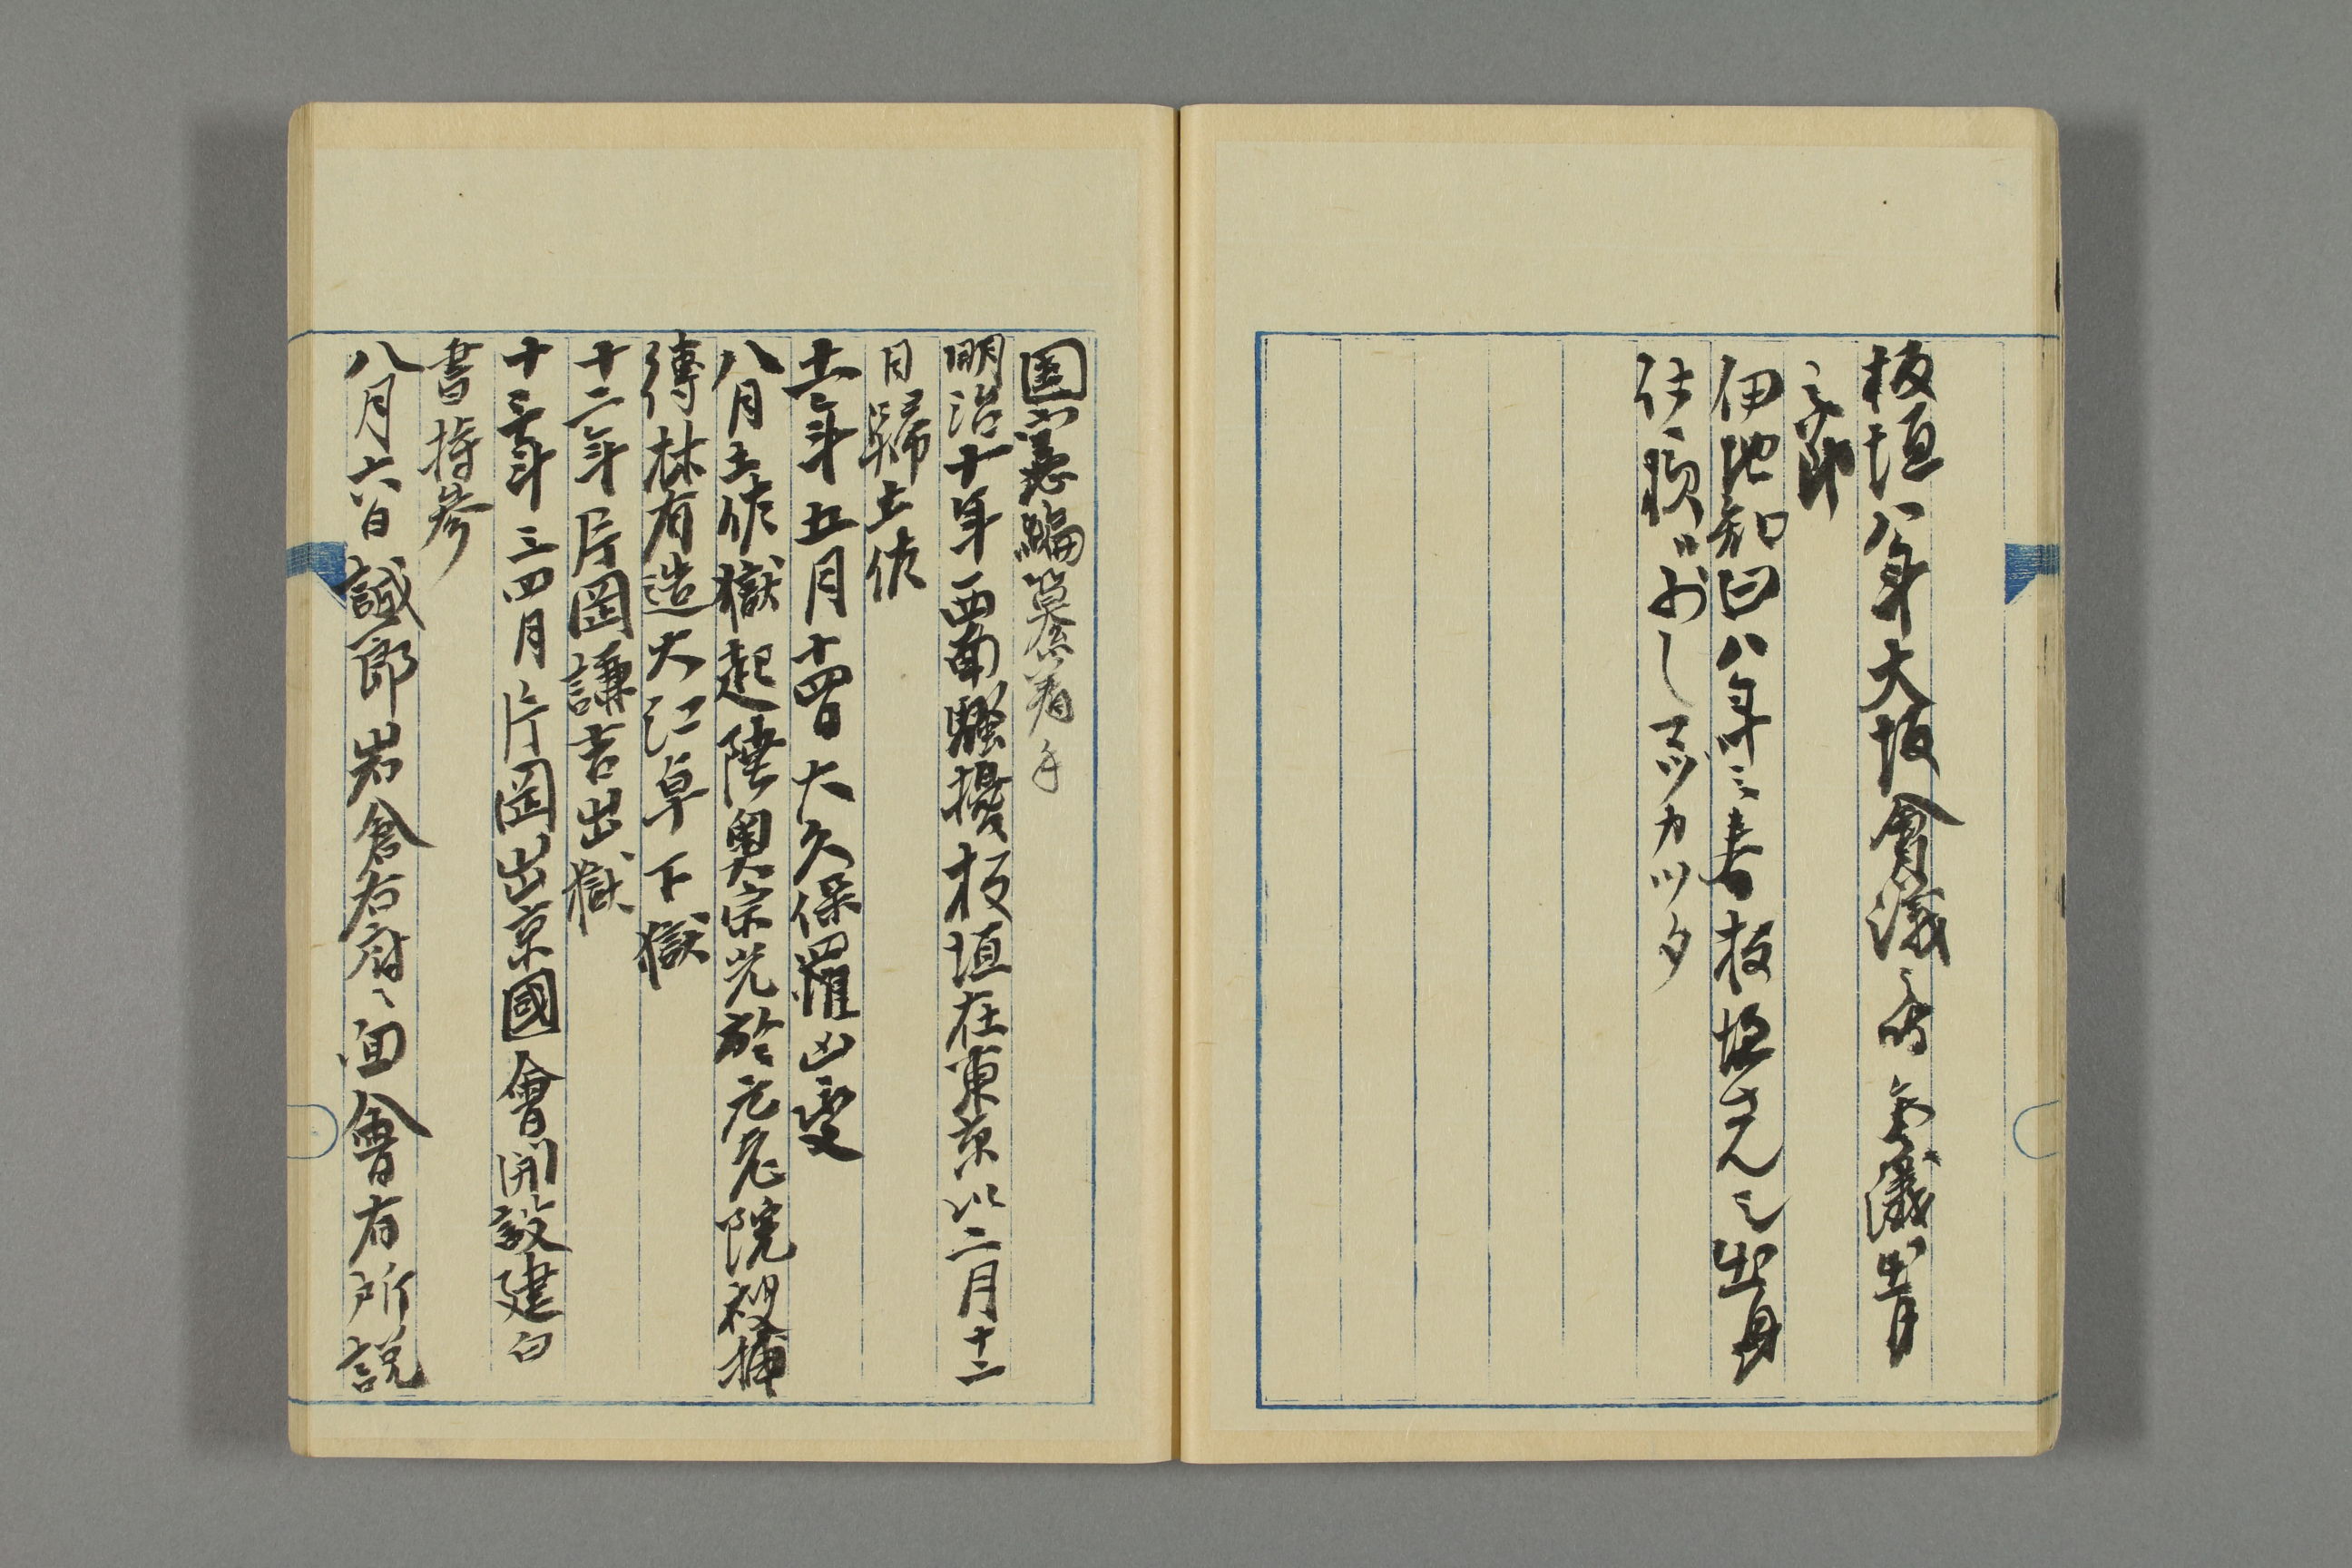 板垣八年大坂會議之時
之節
伊地知曰八年之春板垣さん之出身
仕損ジおしマツカツタ
国憲編纂着手
明治十年西南騒擾板垣在東京以二月十二
日歸土佐
十一年五月十四日大久保罹凶変
八月土佐獄起陸奥宗光於元老院被捕
傳林有造大江卓下獄
十二年片岡謙吉出獄
十三年三四月片岡出京國會開設建白
書持参
八月六日誠一郎岩倉右府ニ面會有所説